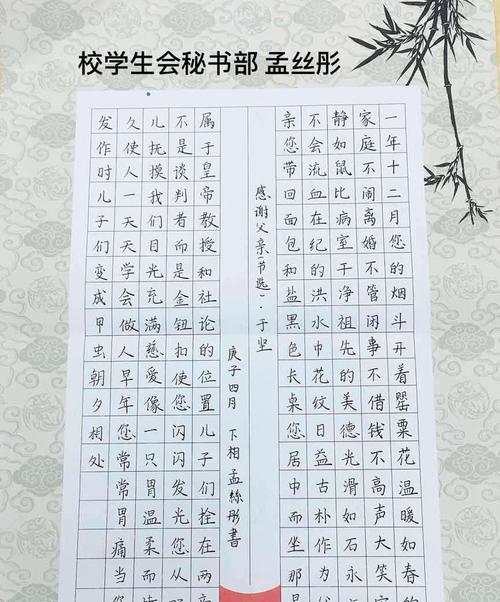 校学生会秘书部 孟丝彤
一年十二月您的烟斗开着罂粟花温暖如春的
家庭不闹离婚不管闲事不借钱不高声大笑
静如鼠比病室干净祖先的美德光滑如石永
不会流血在纪的洪水中花纹日益古朴作为
亲您带回面包和盐黑色长桌您居中而坐那
感谢父亲(节选)·于坚
庚子四月 下相孟絲彤書
属于皇帝教授和社论的位置儿子们拴在两
不是谈判者而是金钮扣使您闪闪发光您从
儿抚摸我们目光充满慈爱像一只胃温柔而
久使人一天天学会做人早年您常胃痛当
发作时儿子们变成甲虫朝夕相处